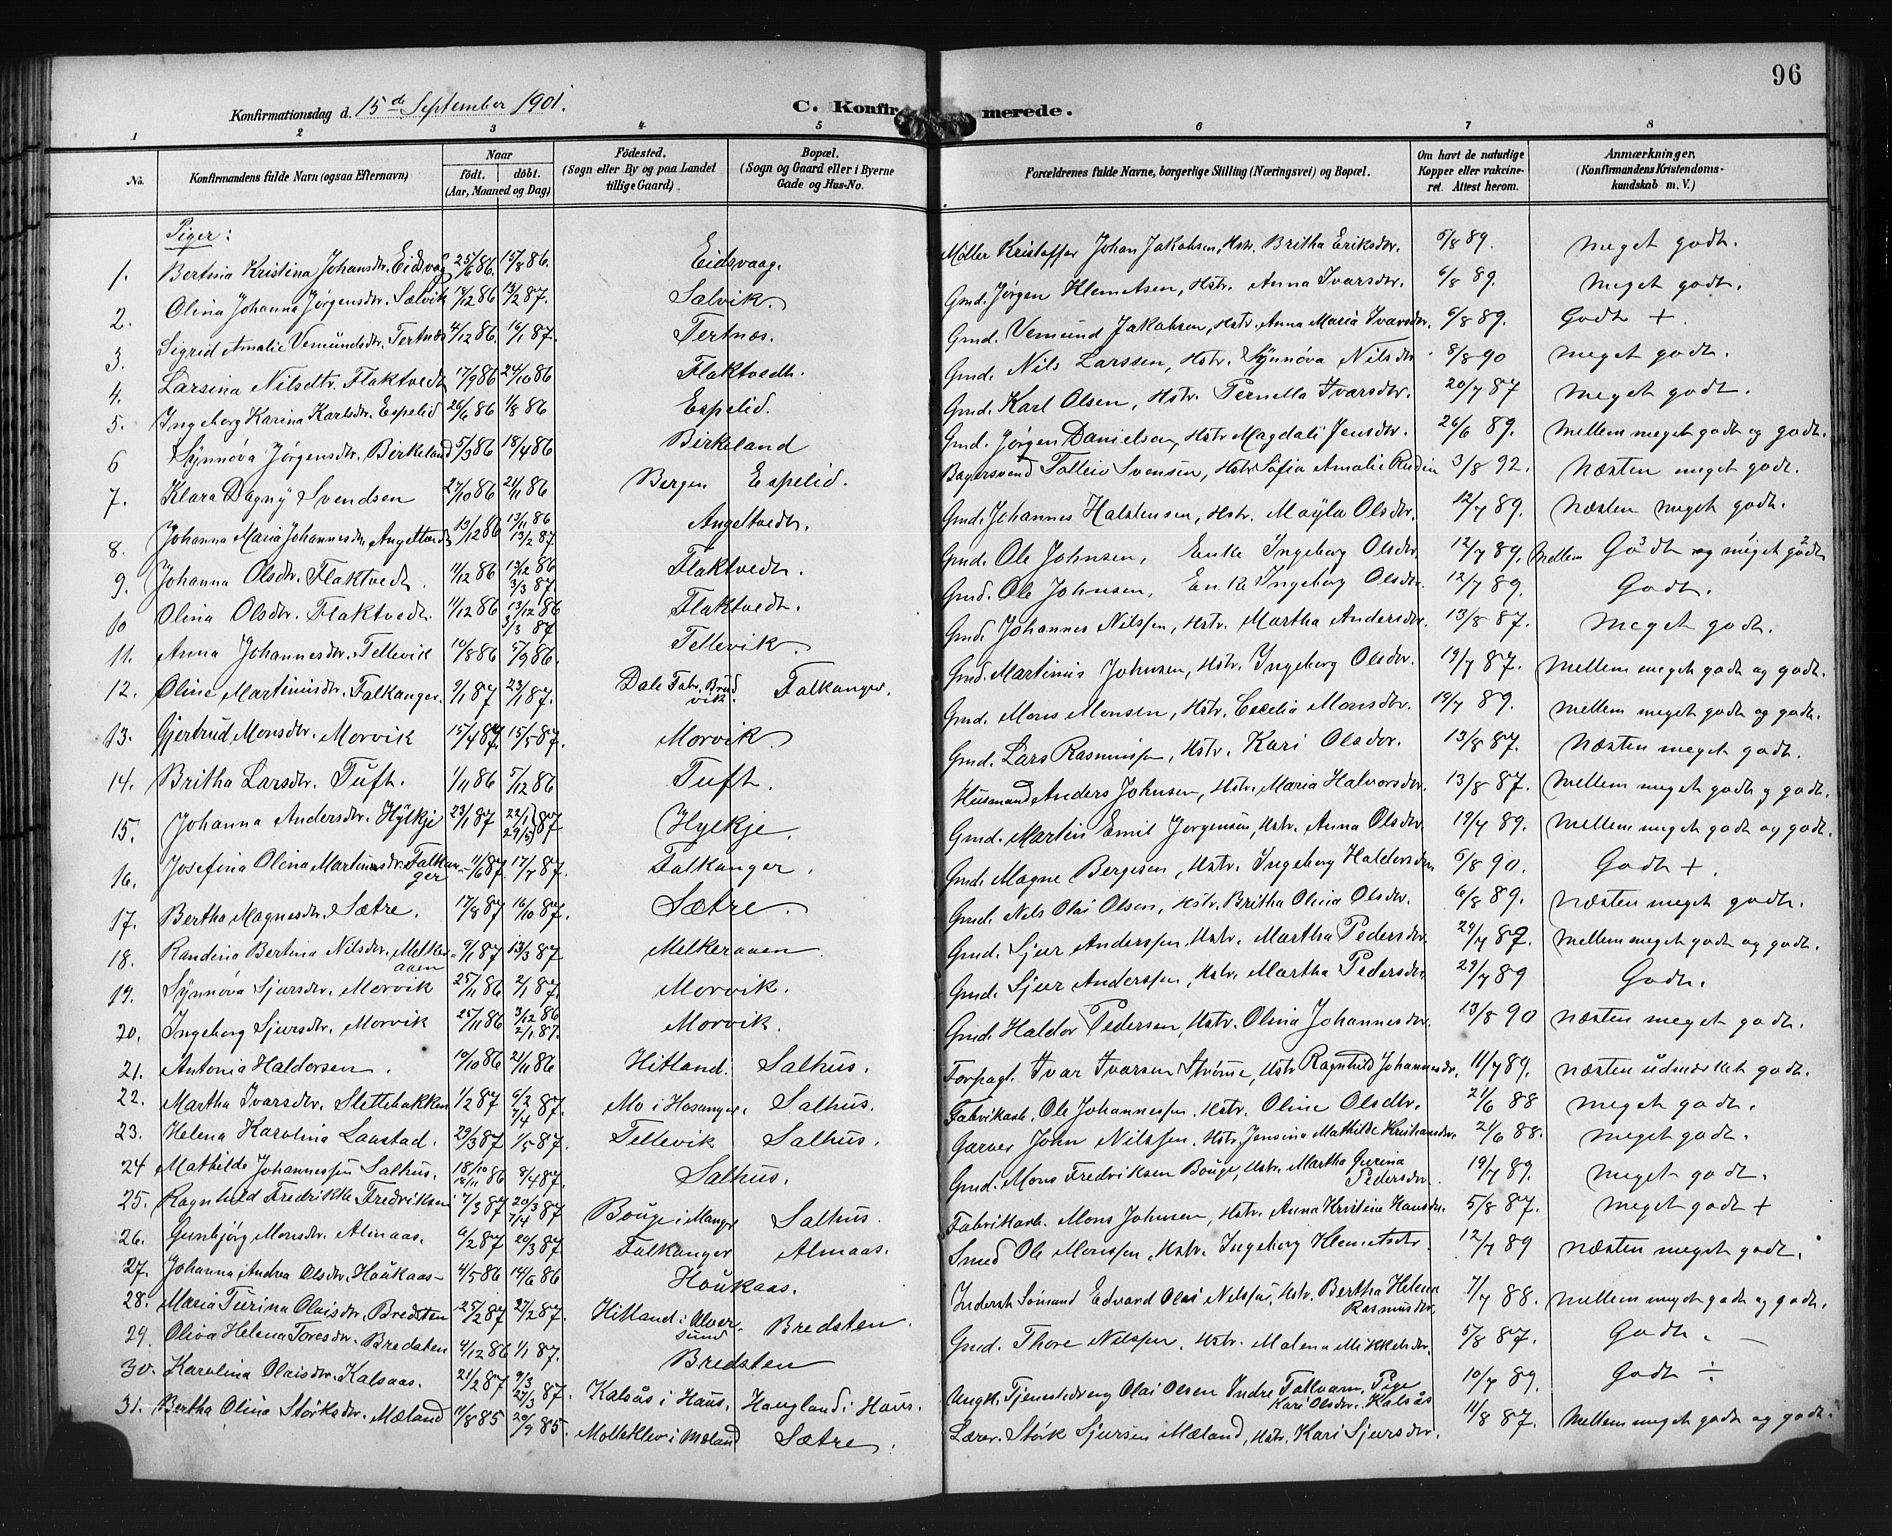 96
Konfirmationsdag d. 15de September 1901.
C. Konfirmerede.
1 2 3 4 5 6 7 8
No. Konfirmandens fulde Navn (ogsaa Efternavn) Naar født. døbt. (Aar, Maaned og Dag) Fødested. (Sogn eller By og paa Landet tillige Gaard). Bopæl. (Sogn og Gaard eller i Byerne Gade og Hus-No. Forældrenes fulde Navne, borgerlige Stilling (Næringsvei) og Bopæl. Om havt de naturlige Kopper eller vakcineret. Attest herom. Anmærkninger. (Konfirmandens Kristendomskundskab m. V.)
Piger:
1. Bertina Kristina Johansdtr. Eidsvaag 25/6 86 15/8 86. Eidsvaag. Møller Kristoffer Johan Jakobsen, Hstr. Britha Eriksdtr. 6/8 89. Meget godt.
2. Olina Johanna Jørgensdtr. Sælvik 18/12 86 13/2 87. Sælvik. Gmd. Jørgen Klemetsen, Hstr. Anna Ivarsdtr. 6/8 89. Meget godt.
3. Sigrid Amalie Vemundsdtr. Tertnæs 4/12 86 16/1 87. Tertnæs. Gmd. Vemund Jakobsen, Hstr. Anna Maria Ivarsdtr. 6/8 89. Godt +.
4. Larsina Nilsdtr. Flaktvedt 17/9 86 24/10 86 Flaktvedt. Gmd. Nils Larssen, Hstr. Synnøva Nilsdtr. 8/8 90 Meget godt.
5. Ingeborg Karina Karlsdtr. Espelid 26/6 86 1/8 86 Espelid. Gmd. Karl Olsen, Hstr. Pernella Ivarsdtr. 20/7 87 Meget godt.
6 Synnøva Jørgensdtr. Birkeland 5/3 86 18/4 86 Birkeland Gmd. Jørgen Danielsen, Hstr. Magdali Jensdtr. 26/6 89. Mellem meget godt og godt.
7. Klara Dagny Svendsen 27/10 86 21/11 86 Bergen Espelid. Bagersvend Tolleiv Svensen, Hstr. Sofia Amalie 3/8 92. Næsten meget godt.
8. Johanna Maria Johannesdtr. Angeltvedt 13/12 86 13/2 87. Angeltvedt. Gmd. Johannes Halstensen, Hstr. Mayla Olsdtr. 12/7 89. Næsten meget godt.
9. Johanna Olsdtr. Flaktvedt. 11/12 86 13/12 86 3/3 87 Flaktvedt. Gmd. Ole Johnsen, Enke Ingeborg Olsdtr. 12/7 89. Mellem Godt og meget godt
10 Olina Olsdtr. Flaktvedt. 11/12 86 13/12 86 3/3 87 Flaktvedt. Gmd. Ole Johnsen, Enke Ingeborg Olsdtr. 12/7 89. Godt.
11. Anna Johannesdtr. Tellevik 10/8 86 5/9 86. Tellevik. Gmd. Johannes Nilssen, Hstr. Martha Andersdtr. 13/8 87. Meget godt.
12. Oline Martinusdtr. Falkanger. 9/1 87 23/1 87. Dale Fabr. Brudvik. Falkanger. Gmd. Martinus Johnsen, Hstr. Ingeborg Olsdtr. 19/7 87. Mellem meget godt og godt.
13. Gjertrud Monsdtr. Morvik 15/4 87. 15/5 87. Morvik. Gmd. Mons Monsen, Hstr. Cecelia Monsdtr. 19/7 89. Mellem meget godt og godt.
14. Britha Larsdtr. Tuft. 1/11 86 5/12 86 Tuft. Gmd. Lars Rasmussen, Hstr. Kari Olsdtr. 13/8 87. Næsten meget godt.
15. Johanna Andersdtr. Hylkje 23/1 87 22/1 29/5 87 Hylkje. Husmand Anders Johnsen, Hstr. Maria Halvorsdtr. 13/8 87. Mellem meget godt og godt.
16. Josefina Olina Martinusdtr. Falkanger 11/6 87. 17/7 87. Falkanger. Gmd. Martin Emil Jørgensen, Hstr. Anna Olsdtr. 19/7 89. Mellem meget godt og godt.
17. Bertha Magnesdtr. Sætre. 17/8 87 16/10 87. Sætre. Gmd. Magne Bergesen, Hstr. Ingeborg Haldorsdtr. 6/8 90. Godt +.
18. Randina Bertina Nilsdtr. Melkeraaen 9/1 87 13/3 87 Melkeraaen. Gmd. Nils Olai Olsen, Hstr. Britha Olina Olsdtr. 6/8 89. Næsten meget godt.
19. Synnøva Sjursdtr. Morvik 25/11 86 2/1 87. Morvik. Gmd. Sjur Anderssen, Hstr. Martha Pedersdtr. 29/7 87. Mellem meget godt og godt.
20. Ingeborg Sjursdtr. Morvik 25/11 86 3/12 86 2/1 87. Morvik. Gmd. Sjur Anderssen, Hstr. Martha Pedersdtr. 29/7 89 Godt.
21. Antonia Haldorsen. 10/10 86 21/11 86 Hitland. Salhus. Gmd. Haldor Pedersen, Hstr. Olina Johannesdtr. 13/8 90 Næsten meget godt.
22. Martha Ivarsdtr. Slettebakken 1/2 87 6/2 7/4 87. Mo i Hosanger. Salhus. Forpagt. Ivar Ivarsen Strømme, Hstr. Ragnhild Johannesdtr. 11/7 89. Næsten udmærket godt.
23. Helena Karolina Laastad. 29/3 87 1/5 87. Tellevik Salhus. Fabrikarb. Ole Johannessen, Hstr. Oline Olsdtr. 21/6 88 Meget godt.
24 Mathilde Johannessen Salhus. 18/10 86 8/4 87. Salhus. Garver John Nilssen, Hstr. Jensina Mathilde Kristiansdtr. 21/6 88. Meget godt.
25. Ragnhild Fredrikke Fredriksen 7/3 87 20/3 7/4 87 Bouge i Manger Salhus. Gmd. Mons Fredriksen Bouge, Hstr. Martha Gurina Pedersdtr. 19/7 89. Meget godt.
26. Gunbjørg Monsdtr. Almaas. 6/2 87 20/3 87 Falkanger Almaas. Fabrikarb. Mons Johnsen, Hstr. Anna Kristine Hansdtr. 5/8 87. Meget godt +
27. Johanna Andrea Olsdtr. Houkaas 4/5 86 14/6 86 Houkaas. Smed Ole Monssen, Hstr. Ingeborg Klemetsdtr. 12/7 89 Næsten meget godt.
28. Maria Turina Olaisdtr. Bredsten 25/1 87 27/2 87. Hitland i Alversund Bredsten. Inderst Sømand Edvard Olai Nilssen, Hstr. Bertha Helena Rasmusdtr. 7/7 88. Mellem meget godt og godt.
29. Oliva Helena Toresdtr. Bredsten 4/12 86 1/1 87. Bredsten Gmd. Thore Nilssen, Hstr. Malena Mikkelsdtr. 5/8 87. Godt. —
30. Karolina Olaisdtr. Kalsaas. 21/2 87 9/3 27/3 87. Kalsås i Haus. Haugland i Haus. Ungk. Tjenestedreng Olai Olsen Indre Takvam, Pige Kari Olsdtr. Kalsås 10/7 89. Godt ÷
31. Bertha Olina Størksdtr. Mæland 11/8 85 20/9 85. Molleklev i Mæland Sætre. Lærer. Størk Sjursen Mæland, Hstr. Kari Sjursdtr. 11/8 87. Mellem meget godt og godt.